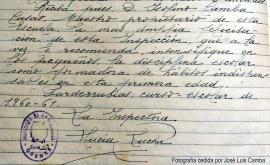 pues, D. Isolino Camba
Casas, Maestro propietario de esta
Escuela la mas amplia felicita-
cion de esta Inspección, que a la
vez le recomienda, intensifique en
los pequeños la disciplina escolar
como formadora de habitos indispen-
sables en esta primera edad.
curso escolar de
1960-61.
La Inspectora
Fotografía cedida por José Luis Camba